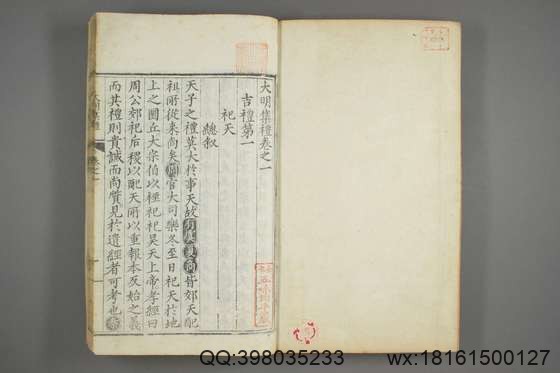 大明集禮卷之一
吉禮第一
祀天
總叙
天子之禮莫大於事天故有虞夏商皆郊天配
祖所從來尚矣周官大司樂冬至日祀天於地
上之圜丘大宗伯以禋祀祀昊天上帝孝經曰
周公郊祀后稷以配天所以重報本反始之義
而其禮則貴誠而尚質見於遺經者可考也秦
QQ:398035233
wx:18161500127